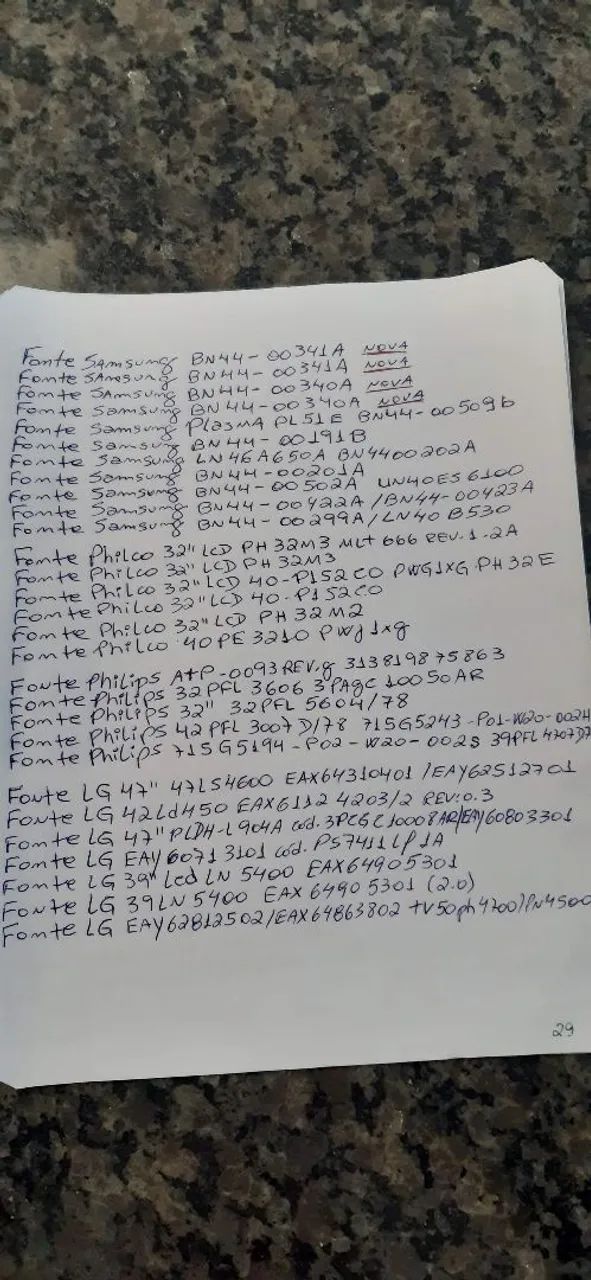 Fonte Samsung BN44-00341A NOVA
Fonte Samsung BN44-00341A NOVA
Fonte Samsung BN44-00340A NOVA
Fonte Samsung BN44-00340A NOVA
Fonte Samsung Plasma PL51E BN44-00509b
Fonte Samsung BN44-00191B
Fonte Samsung LN46A650A BN4400202A
Fonte Samsung BN44-00201A
Fonte Samsung BN44-00502A UN40ES6100
Fonte Samsung BN44-00422A/BN44-00423A
Fonte Samsung BN44-00299A/LN40B530
Fonte Philco 32" LCD PH32M3 MLt 666 REV.1.2A
Fonte Philco 32" LCD PH32M3
Fonte Philco 32" LCD 40-P152CO PWG1XG PH32E
Fonte Philco 32" LCD 40-P152CO
Fonte Philco 32" LCD PH32M2
Fonte Philco 40PE3210 PWg1xg
Fonte Philips AtP-0093 REV.g 313819875863
Fonte Philips 32PFL3606 3PAGC10050AR
Fonte Philips 32" 32PFL5604/78
Fonte Philips 42PFL3007D/78 715G5243-P01-W20-002H
Fonte Philips 715G5194-P02-W20-002S 39PFL4707D7
Fonte LG 47" 47LS4600 EAX64310401/EAY62512701
Fonte LG 42Ld450 EAX61124203/2 REV:0.3
Fonte LG 47" PLDH-L904A cód. 3PCGC10008AR/EAY60803301
Fonte LG EAY60713101 cód. PS7411LP1A
Fonte LG 39" Led LN5400 EAX64905301
Fonte LG 39LN5400 EAX64905301 (2.0)
Fonte LG EAY62812502/EAX64863802 tv50ph4700/PN4500
29